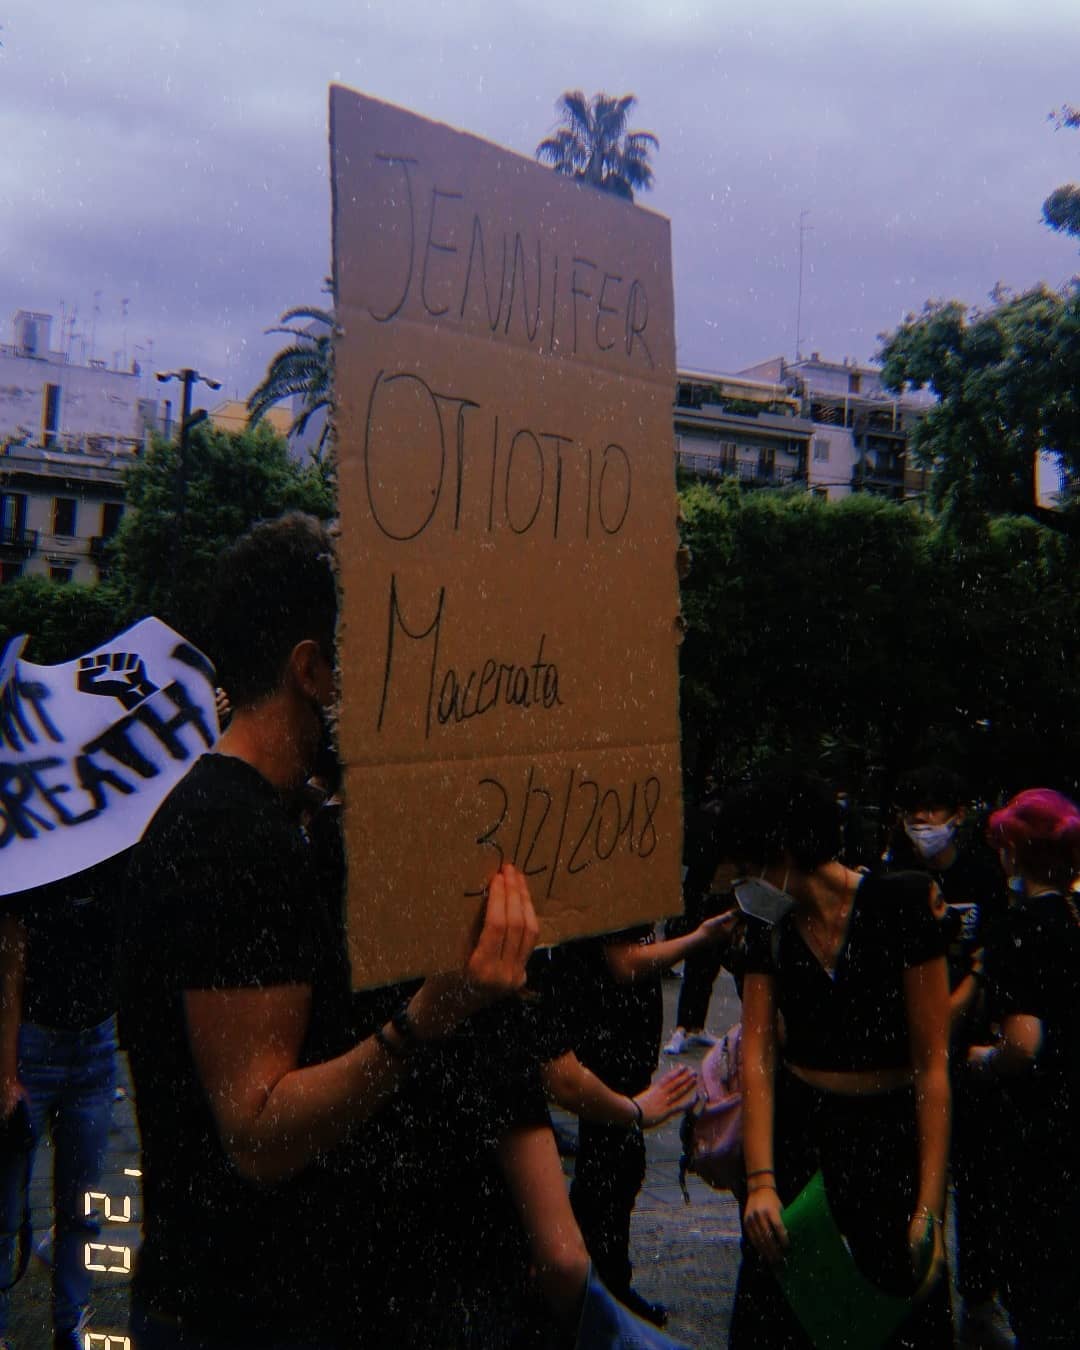 JENNIFER
OTIOTIO
Macerata
3/2/2018
BREATH
'20